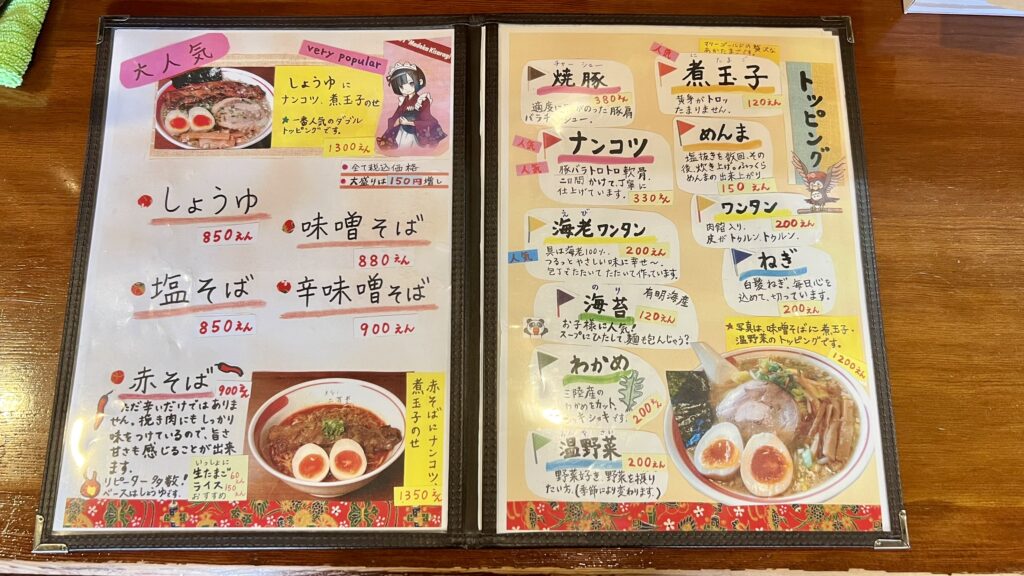 大人気
very popular
しょうゆに
ナンコツ、煮玉子のせ
★一番人気のダブル
トッピングです。
1300えん
●全て税込価格
●大盛りは150円増し
しょうゆ
850えん
味噌そば
880えん
塩そば
850えん
辛味噌そば
900えん
赤そば
900えん
ただ辛いだけではありま
せん。挽き肉にもしっかり
味をつけているので、旨さ
甘さも感じることが出来
ます。
リピーター多数!
ベースはしょうゆです。
いっしょに
生たまご 60えん
ライス 150えん
おすすめ
赤そばにナンコツ、
煮玉子のせ
1350えん
トッピング
チャーシュー
焼豚
380えん
バラチャーシュー。
人気
たまご
煮玉子
黄身がトロッ
たまりません。
120えん
人気
人気
ナンコツ
豚バラトロトロ軟骨。
二日間かけて、丁寧に
仕上げています。
330えん
めんま
塩抜きを数回、その
後、炊き上げ。ふっくら
めんまの出来上がり
150えん
えび
海老ワンタン
200えん
具は海老100%。
つるっとやさしい味に幸せ〜
包丁でたたいてたたいて作っています。
人気
ワンタン
200えん
肉餡入り。
皮がトゥルン、トゥルン。
のり
海苔
有明海産
120えん
お子様に人気!
スープにひたして、麺も包んじゃう?
ねぎ
白髪ねぎ、毎日心を
込めて、切っています。
200えん
わかめ
三陸産の
200えん
★写真は、味噌そばに煮玉子・
温野菜のトッピングです。
1200えん
温野菜
200えん
野菜好き、野菜を採り
たい方。(季節により変わります)